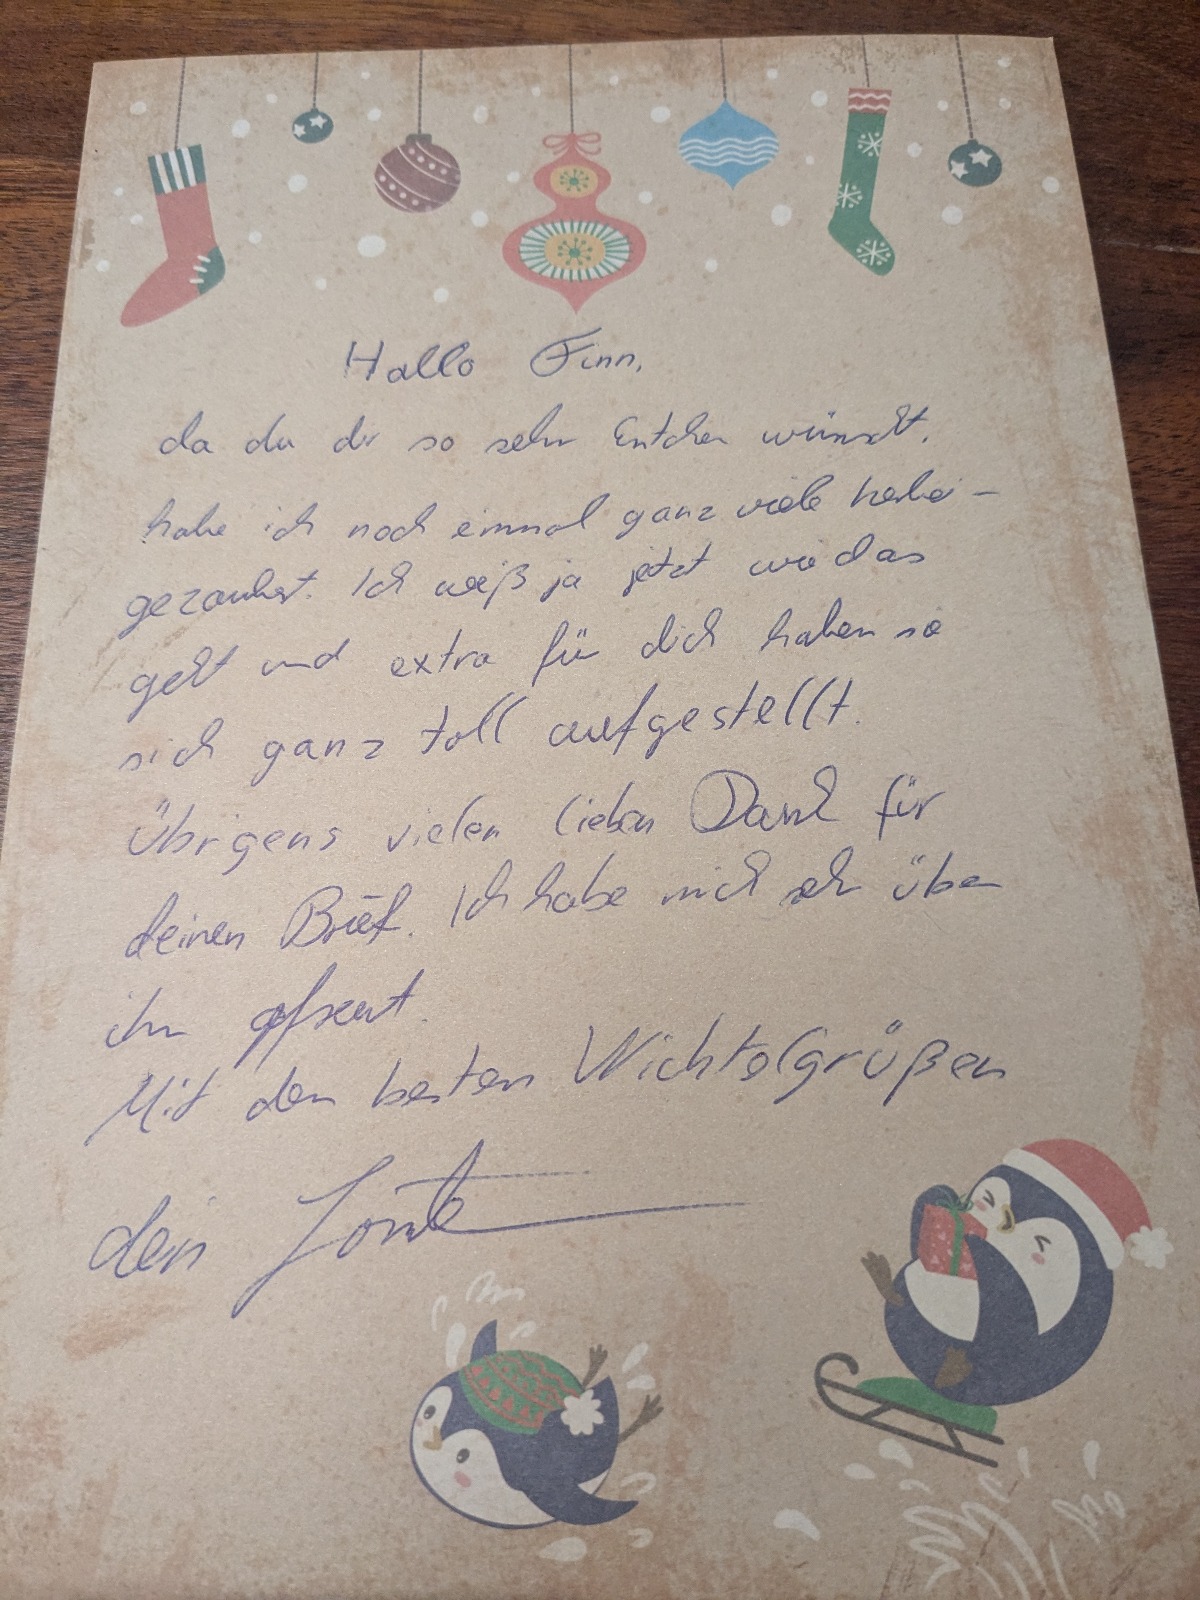 Hallo Finn,
da du dir so sehr Entchen wünscht,
habe ich noch einmal ganz viele herbei-
gezaubert. Ich weiß ja jetzt wie das
geht und extra für dich haben sie
sich ganz toll aufgestellt.
Übrigens vielen lieben Dank für
deinen Brief. Ich habe mich sehr über
ihn gefreut.
Mit den besten Wichtelgrüßen
dein